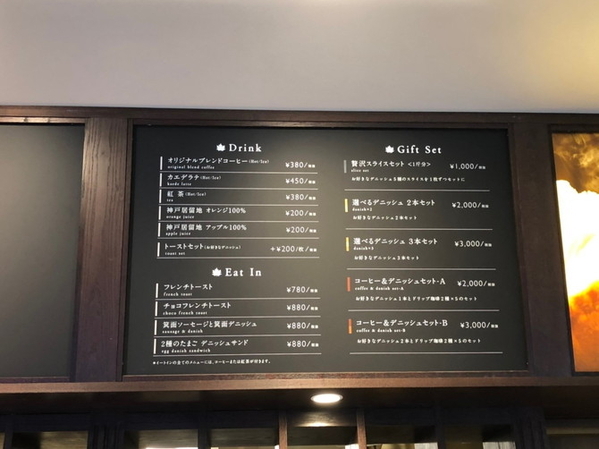 Drink
オリジナルブレンドコーヒー(Hot/Ice) ¥380/税抜
original blend coffee
カエデラテ(Hot/Ice) ¥450/税抜
kaede latte
紅茶(Hot/Ice) ¥380/税抜
tea
神戸居留地 オレンジ100% ¥200/税抜
orange juice
神戸居留地 アップル100% ¥200/税抜
apple juice
トーストセット(お好きなデニッシュ) +¥200/枚/税抜
toast set
Eat In
フレンチトースト ¥780/税抜
french toast
チョコフレンチトースト ¥880/税抜
choco french toast
箕面ソーセージと箕面デニッシュ ¥880/税抜
sausage & danish
2種のたまご デニッシュサンド ¥880/税抜
egg danish sandwich
*イートインの全てのメニューには、コーヒーまたは紅茶が付きます。
Gift Set
贅沢スライスセット <1斤分> ¥1,000/税抜
slice set
お好きなデニッシュ3種のスライスを1枚ずつセットに
選べるデニッシュ 2本セット ¥2,000/税抜
danish×2
お好きなデニッシュ2本セット
選べるデニッシュ 3本セット ¥3,000/税抜
danish×3
お好きなデニッシュ3本セット
コーヒー&デニッシュセット・A ¥2,000/税抜
coffee & danish set-A
お好きなデニッシュ1本とドリップ珈琲2種×5のセット
コーヒー&デニッシュセット・B ¥3,000/税抜
coffee & danish set-B
お好きなデニッシュ2本とドリップ珈琲2種×5のセット